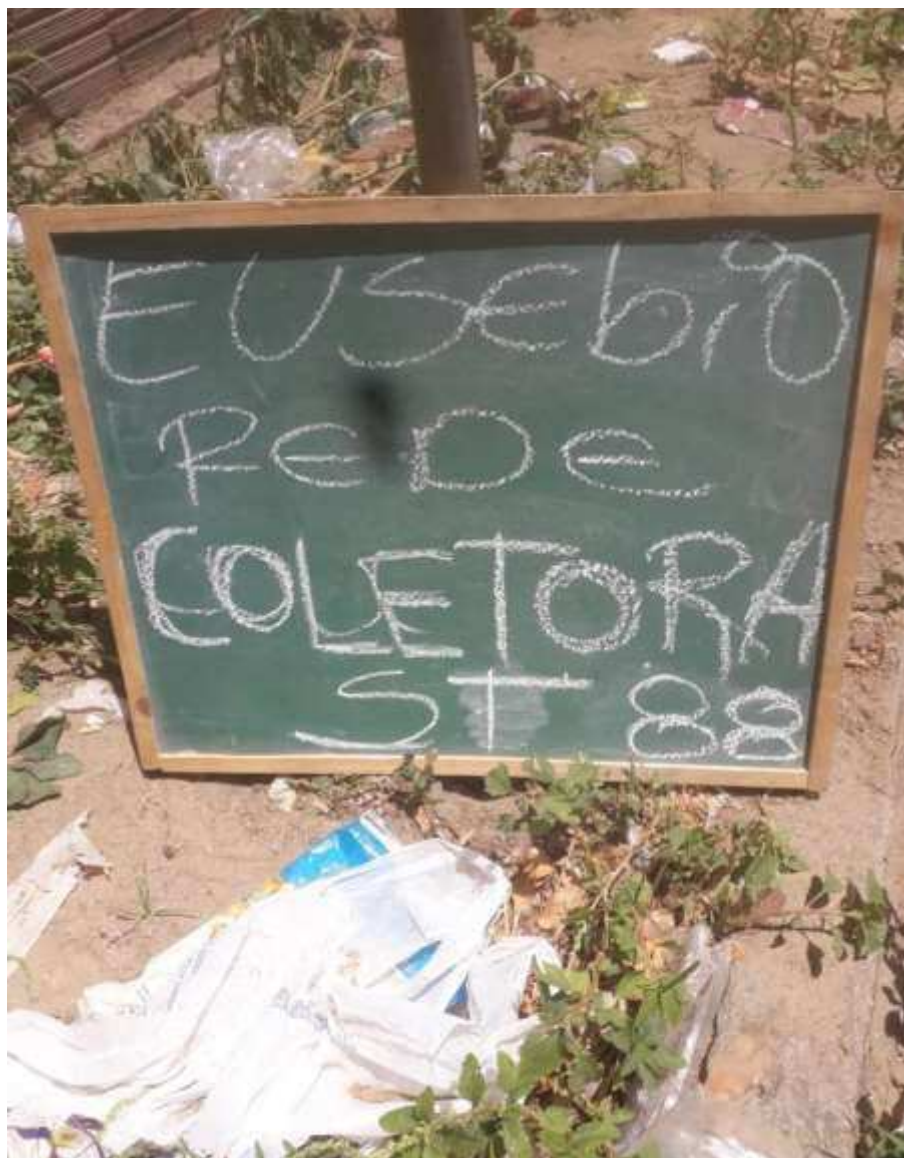 EUSEbiO
REDE
COLETORA
ST 88